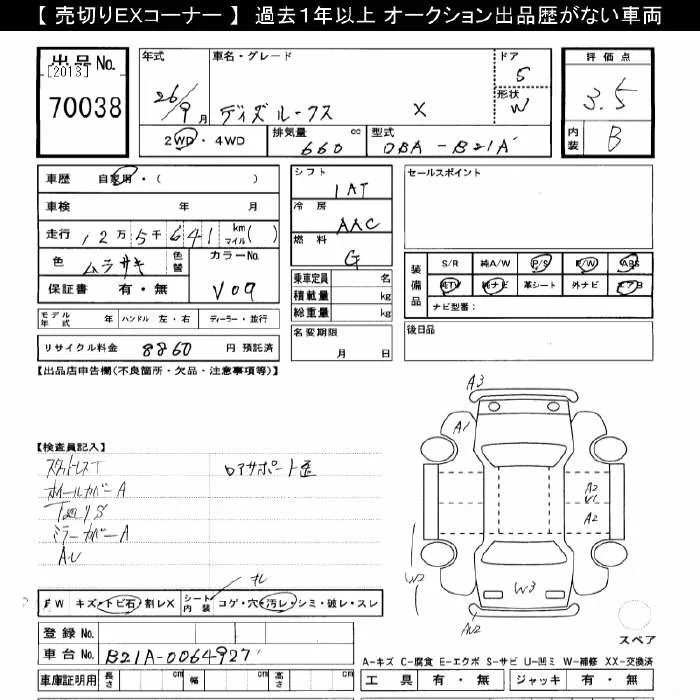 【 売切りEXコーナー 】 過去１年以上 オークション出品歴がない車両
出品No.
[2013]
70038
年式 車名・グレード ドア
26/9月 ディズルークス X 5
形状 W
2WD・4WD 排気量 660 cc 型式 DBA-B21A
評価点
3.5
内装 B
車歴 自家用・( )
車検 年 月
走行 12万5千641 km マイル( )
色 ムラサキ 色替 カラーNo.
保証書 有・無 V09
モデル年式 年 ハンドル 左・右 ディーラー・並行
リサイクル料金 8860 円 預託済
シフト
IAT
冷房
AAC
燃料
G
乗車定員 名
積載量 kg
総重量 kg
名変期限
月 日
セールスポイント
装備品 S/R 純A/W P/S P/W ABS
純TV 純ナビ 革シート 外ナビ エアB
ナビ型番：
後日品
【出品店申告欄(不良箇所・欠品・注意事項等)】
【検査員記入】
スタットレスT ロアサポート歪
ホイールカバーA
下廻りS
ミラーカバーA
A3
A1
A2
A2
W3
AU2
FW キズ・トビ石・割レX シート内装 コゲ・穴・汚レ・シミ・破レ・スレ
スレ
登録 No.
車台 No. B21A-0064927
車庫証明用 長さ cm 幅 cm 高さ cm
スペア
A-キズ C-腐食 E-エクボ S-サビ U-凹ミ W-補修 XX-交換済
工具 有・無 ジャッキ 有・無